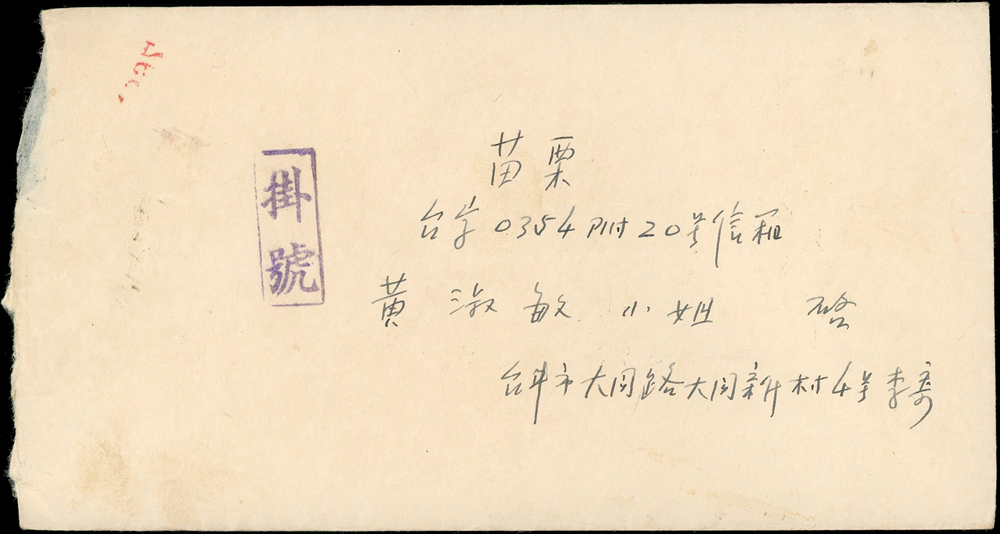 掛號
苗栗
台字0354附20号信箱
黃淑敏小姐 啓
台中市大同路大同新村4号李寄